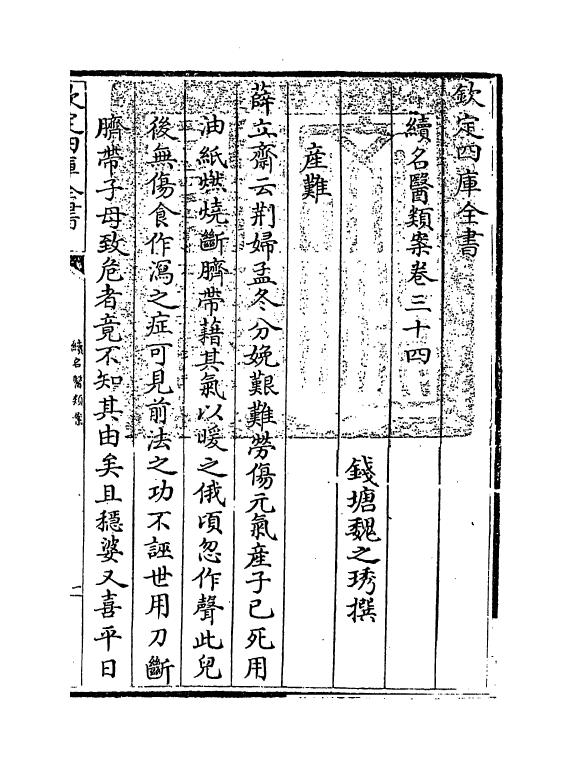 欽定四庫全書
續名醫類案卷三十四
錢塘魏之琇撰
産難
薛立齋云荆婦孟冬分娩艱難勞傷元氣産子已死用
油紙燃燒斷臍帶藉其氣以暖之俄頃忽作聲此兒
後無傷食作瀉之症可見前法之功不誣世用刀斷
臍帶子母致危者竟不知其由矣且穩婆又喜平日
欽定四庫全書
續名醫類案